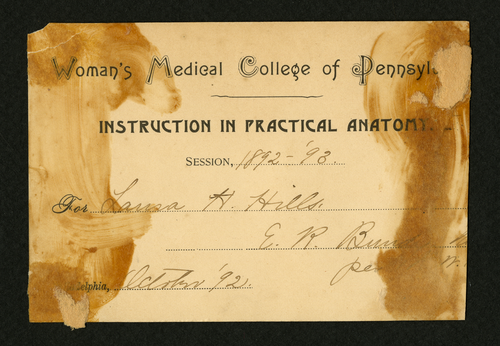 Woman's Medical College of Pennsyl
INSTRUCTION IN PRACTICAL ANATOMY.
SESSION, 1892-'93.
For Laura H. Hills.
E. R.
elphia, October '92.